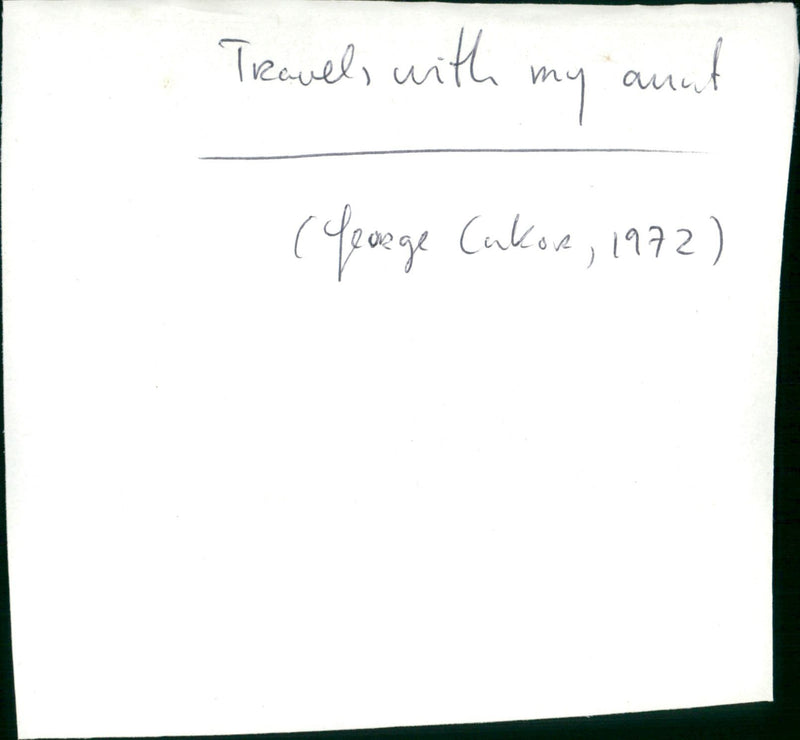 Travels with my aunt
(George Cukor, 1972)